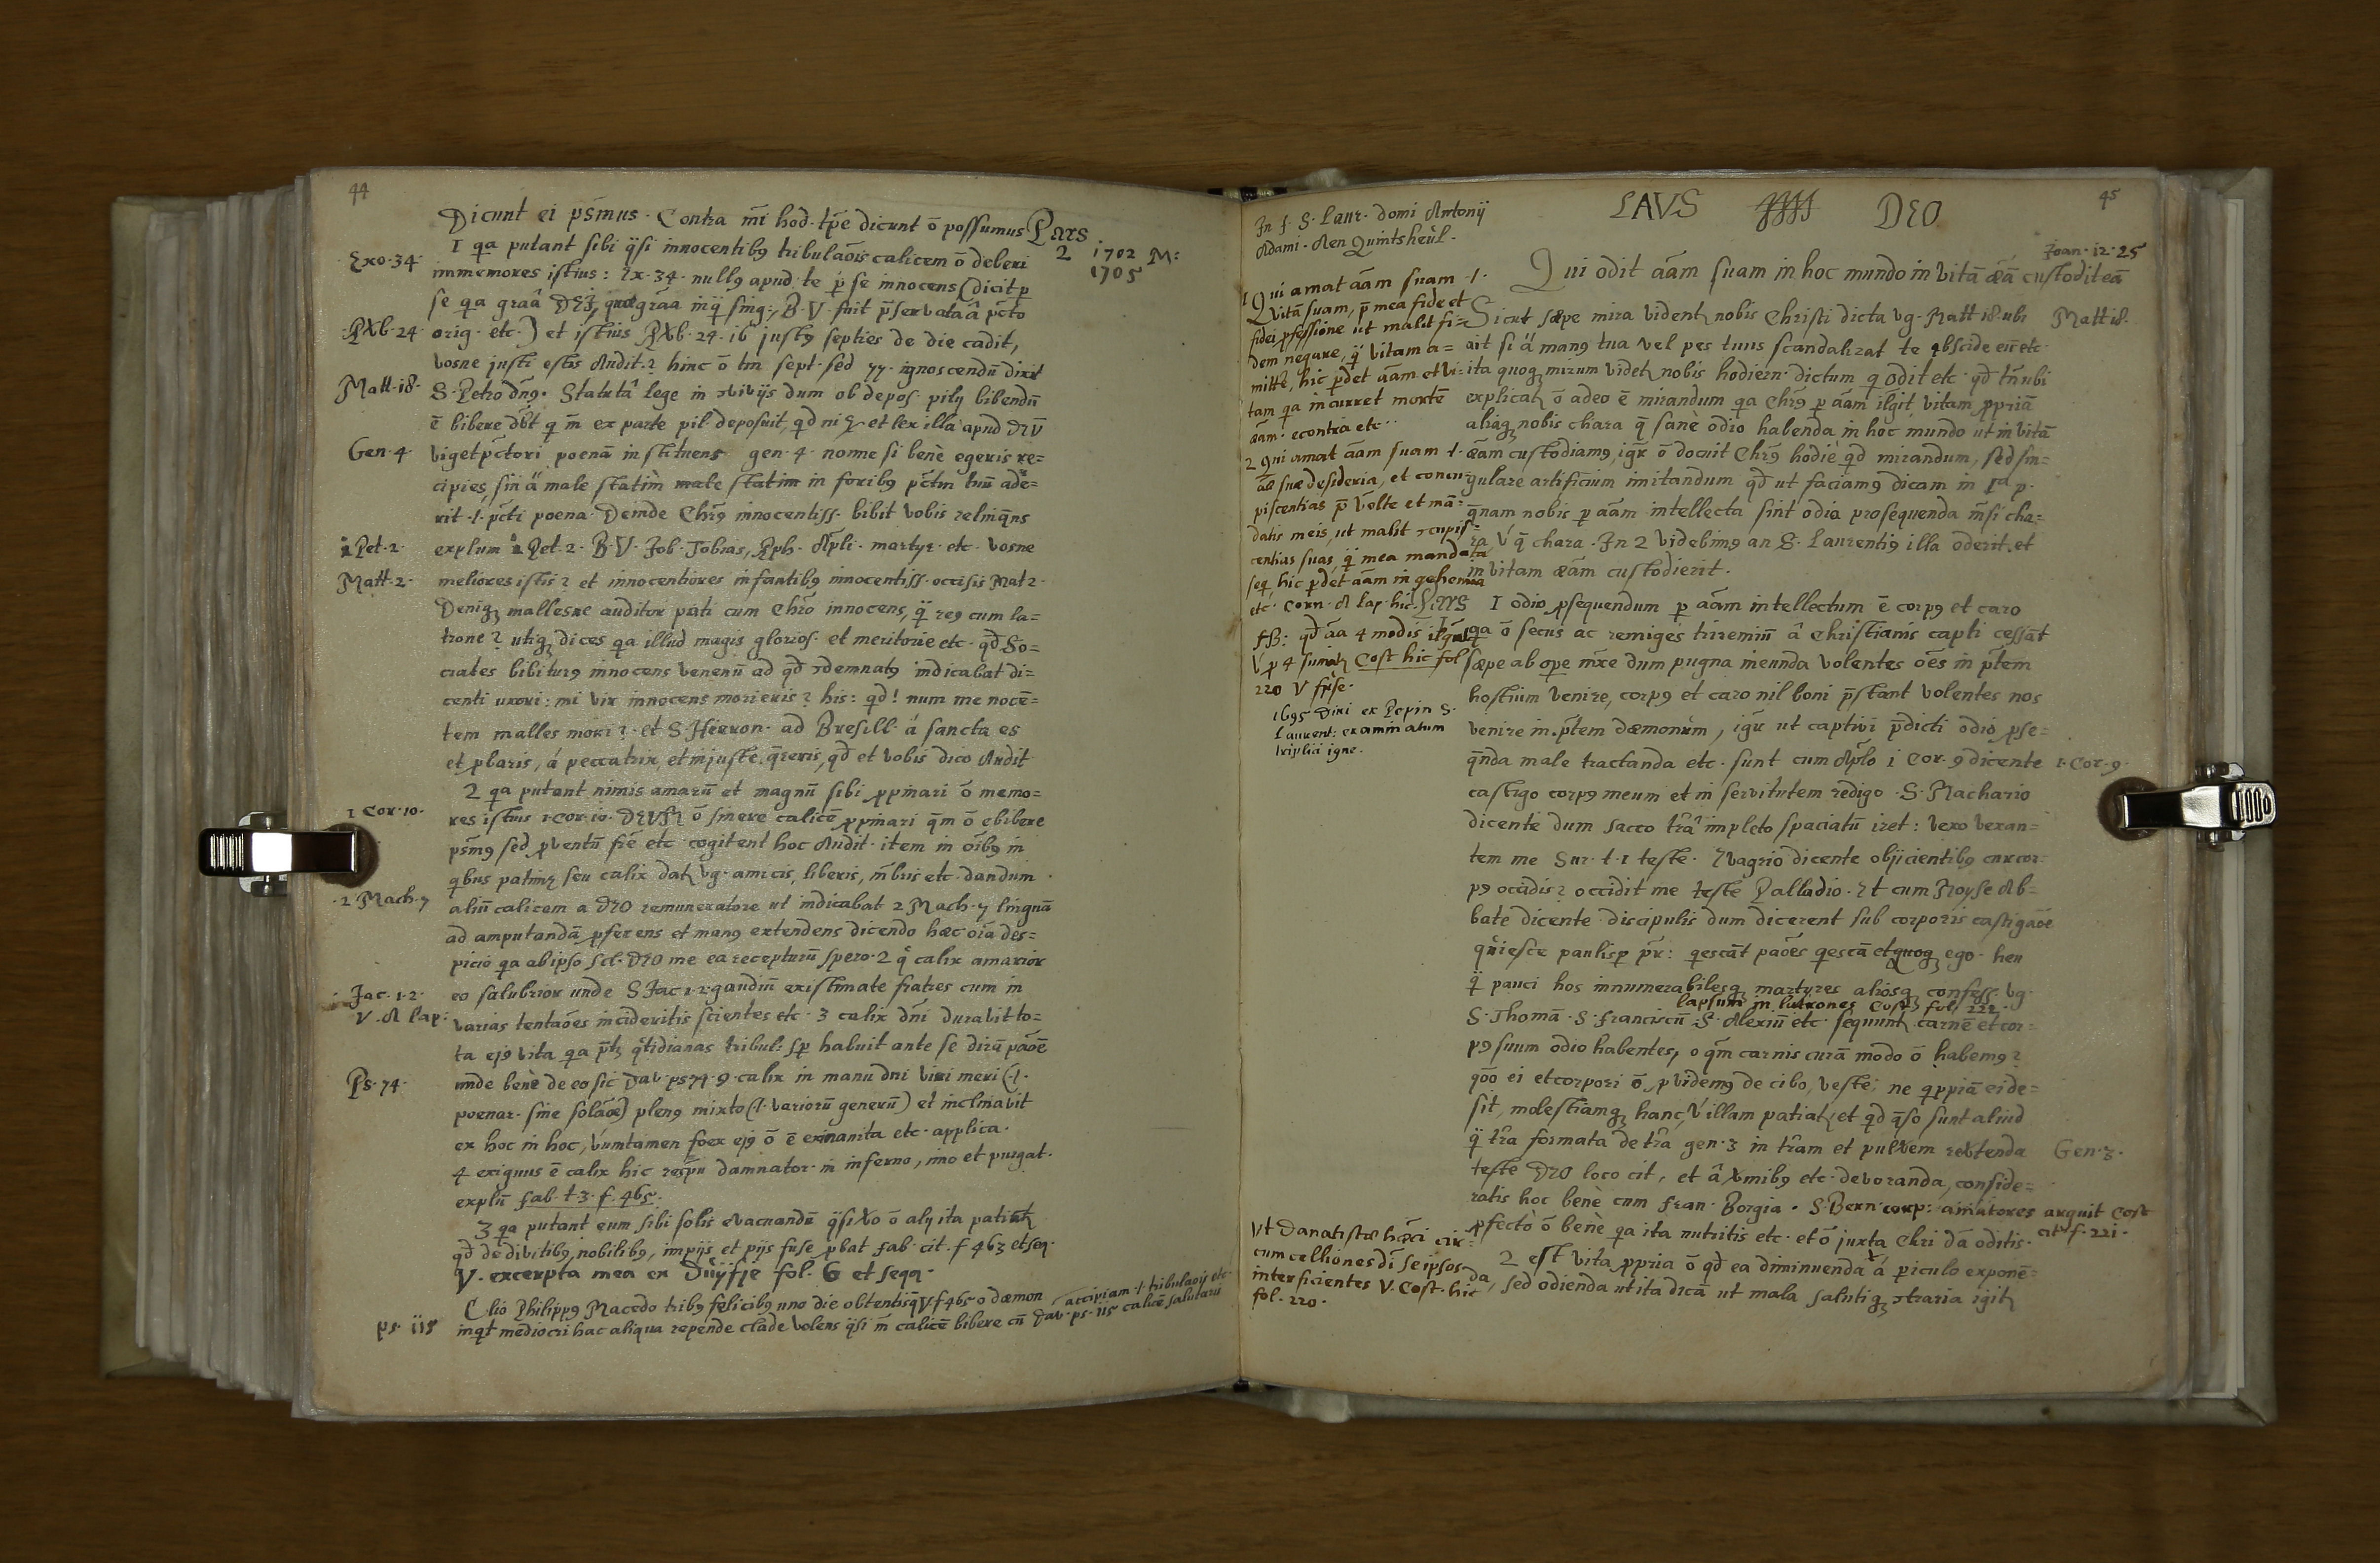 44
Dicunt ei pśmus · Contra m̄i hod · tp̄e dicunt ō possumus Pars
2 1702 M:
1705
1 qa putant sibi q̈si innocentibꝰ tribulaōis calicem ō deberi
Exo · 34 immemores istius : Ex · 34 · nullꝰ apud te p̱ se innocens (dicit p̱
se qa graâ DEI, graa B · V · fuit p̄servata â pc̄to
PRb · 24 orig · etc · ) et istius PRb · 24 · 16 justꝰ septies de die cadit,
vosne justi estis Audit · ? hinc ō tm sept · sed 77 · ignoscendū dixit
Matt · 18 S · Petro dn̄ꝰ · Statutâ lege in dum ob depos · pily bibendū
ē bibere db̄t q m̄ ex parte pil · deposuit, qd ni et lex illa apud DEŪ
Gen · 4 viget pc̄tori poenā instituens gen · 4 · nonne si benè egeris re=
cipies, sin ä male statìm male statim in foribꝰ pc̄tm tuū ade=
rit · 1 · pc̄ti poena · Deinde Chrꝰ innocentiss · bibit vobis relinq̄ns
1 Pet · 2 · explum 1 Pet · 2 · B · V · Job · Tobias, Rph · Apli · martyr · etc · vosne
Matt · 2 · meliores istis ? et innocentiores infantibꝰ innocentiss · occisis Mat 2 ·
Deniqꝫ mallesne auditor pati cum Chrō innocens, q̈ reꝰ cum la=
trone ? utiqꝫ dices qa illud magis glorios · et meritorie etc · qd̄ So=
crates bibiturꝰ innocens venenū ad qd̄ ↄdemnatꝰ indicabat di=
centi uxori : mi vir innocens morieris ? his : qd ! num me nocē=
tem malles mori ? · et S · Hieron · ad Bresill · á sancta es
et p̱baris, á peccatrix, et injustè q̄reris, qd̄ et vobis dico Audit
2 qa putant nimis amarū et magnū sibi p̱pinari ō memo=
1 Cor · 10 · res istius 1 · cor · 10 · DEUM ō sinere calicē p̱pinari q̄m ō ebibere
psm̄ꝰ sed p̱ventū fiē etc cogitent hoc Audit · item in oīb̄ꝰ in
qbus patimꝫ seu calix datꝫ vg · amicis, liberis, m̄bris etc · dandum ·
2 Mach · 7 aliū calicem a DEO remuneratore ut indicabat 2 Mach · 7 linguā
ad amputandā p̱ferens et manꝰ extendens dicendo hæc oīa des=
picio qa ab ipso scl · DEO me ea recepturū spero · 2 q̊ calix amarior
Jac · 1 · 2 · eo salubrior unde S Jac 1 · 2 · gaudiū existimate fratres cum in
V · A Lap : varias tentaōes incideritis scientes etc · 3 calix dn̄i duravit to=
ta ejꝰ vita qa p̄tꝫ q̊tidianas tribul : sp̱ habuit ante se dirā pāōē
Ps · 74 · unde benè de eo sic Dav · ps 74 · 9 · calix in manu dni vini meri ( · 1 ·
poenar · sine solāōe) plenꝰ mixto ( 1 · variorū generū ) et inclinavit
ex hoc in hoc, vúmtamen foex ejꝰ ō ē exinanita etc · applica ·
4 exiguus ē calix hic resp̄u damnator · in inferno, imo et purgat ·
explū fab · t · 3 · f · 465 ·
3 qa putant eum sibi solis evacuandū q̈si vo ō aly ita patiūtꝫ
qd̄ de divitibꝰ, nobilibꝰ, impijs et pijs fuse p̱bat Fab · cit · f 463 et seq ·
V · excerpta mea ex Duÿfje fol · 6 et seqq ·
Clio Philippꝰ Macedo tribꝰ felicibꝰ uno die obtentis V f 465 o dæmon accipiam · 1 · tribulaōij etc ·
ps · 115 inqt mediocri hac aliqua repende clade volens q̈si m̄ calicē bibere cū Dav · ps · 115 calicē salutaris
45
In f · S · Laur · Domi Antonij
Adami · Aen Quintsheùl ·
LAVS DEO
Joan · 12 · 25
Qui odit āam suam in hoc mundo in vitā æā custodit eā
1 Qui amat āam suam · 1 ·
vitā suam, p̄ mea fide et
fidei p̱fessione ut malit fi=
dem negare, q̈ vitam a=
mitte, hic p̱det āam et vi=
tam qa incurret mortē
āam · econtra etc ·
2 Qui amat āam suam · 1 ·
āæ suæ desideria, et concu=
piscentias p̄ volte et mā=
datis meis, ut malit ↄcupis=
centias suas, q̈ mea mandata
seq, hic p̱det āam in gehenna
etc · Corn · A Lap · hic ·
NB : qd̄ āa 4 modis
V p 4 sumitꝫ Cost hic fol
220 V
1695 Dixi ex Pepin S ·
Laurent : examinatum
triplici igne ·
Sicut sæpe mira videntꝫ nobis Christi dicta vg · Matt 18 · ubi Matt 18 ·
ait si ä manꝰ tua vel pes tuus scandalizat te abscide eū etc ·
ita quoqꝫ mirum videtꝫ nobis hodiern · dictum q odit etc · qd̄ tn̄ ubi
explicatꝫ ō adeo ē mirandum qa Chrꝰ p̱ āam ilgit vitam p̱priā
aliaqꝫ nobis chara q̄ sanè odio habenda in hoc mundo ut in vitā
æāam custodiamꝰ, igr̄ ō docuit Chrꝰ hodiè qd mirandum, sed sin=
gulare artificium imitandum qd̄ ut faciamꝰ dicam in 1ᵃ p ·
q̄nam nobis p̱ āam intellecta sint odio prosequenda m̄si cha=
ra, v́ q̄ chara · In 2 videbimꝰ an S · Laurentiꝰ illa oderit, et
in vitam æāam custodierit ·
Pars 1 1 odio p̱sequendum p̱ āam intellectum ē corpꝰ et caro
qa ō secus ac remiges triremiū â Christianis capti cessāt
sæpe ab ope m̄xe dum pugna ineunda volentes oēs in p̄tem
hostium venire, corpꝰ et caro nil boni p̄stant volentes nos
venire in p̄tem dæmonum, igr̄ ut captivi p̄dicti odio p̱se=
q̄nda male tractanda etc · sunt cum Aplō 1 Cor · 9 dicente 1 · Cor · 9 ·
castigo corpꝰ meum et in servitutem redigo · S · Machario
dicente dum sacco tr̄â impleto spaciatū iret : vexo vexan=
tem me Sur · t · 1 teste · Evagrio dicente objicientibꝰ cur cor=
pꝰ occidis ? occidit me teste Palladio · Et cum Moyse Ab=
bate dicente discipulis dum dicerent sub corporis castigaōē
qu̇iesce paulisp̱ pr̄ : qescāt paōes qescā et quoqꝫ ego · heu
q̈ pauci hos innumerabilesqꝫ martyres aliosqꝫ confess · vg ·
lapsum in latrones Cost fol · 222 ·
S · Thomā · S · Franciscū · S · Alexiū etc · sequuntꝫ carnē et cor=
pꝰ suum odio habentes, o q̄m carnis curā modo ō habemꝰ ?
qōo ei et corpori ō p̱videmꝰ de cibo, veste, ne q p̱piā ei de=
sit, molestiamqꝫ hanc, v́ illam patiatꝫ, et qd q̄so sunt aliud
q̈ tr̄a formata de tr̄a gen · 3 in tr̄am et pulv̊em rev̊tenda Gen · 3 ·
teste DEO loco cit, et â v̊mibꝰ etc · devoranda, conside=
ratis hoc benè cum Fran · Borgia · S · Bern corp : amatores arguit Cost
cit f · 221 ·
p̱fectò ō benè qa ita nutritis etc · et ō juxta Chri dā oditis ·
2 est vita p̱pria ō qd̄ ea diminuenda v̊ á p̱iculo exponē=
da, sed odienda ut ita dicā ut mala salutiqꝫ ↄtraria igitꝫ
Vt Danatistæ hǣci cir=
cumcelliones dī se ipsos
interficientes V · Cost · hic
fol · 220 ·